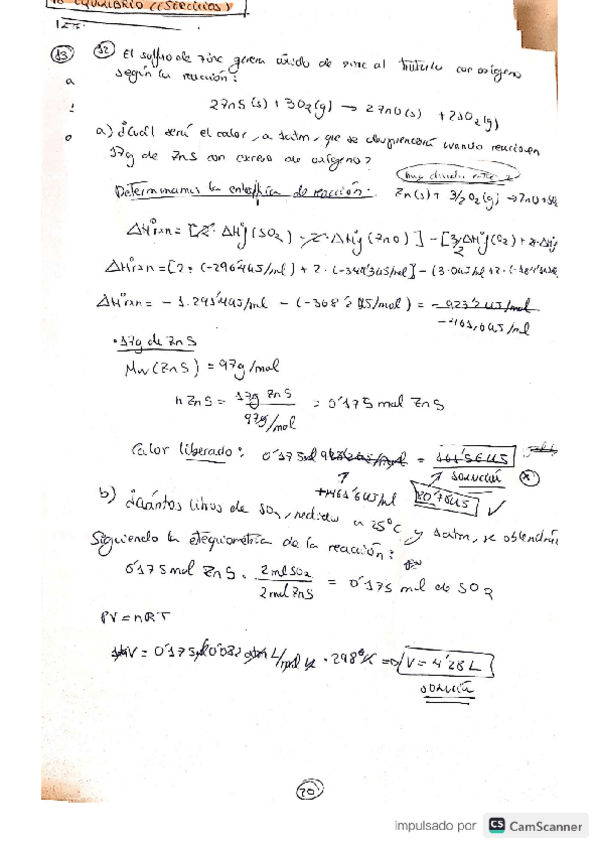 EQUILIBRIO (EJERCICIOS)
13 12 El sulfuro de zinc genera óxido de zinc al tratarlo con oxígeno
según la reacción:
2ZnS(s) + 3O2(g) → 2ZnO(s) + 2SO2(g)
a) ¿Cuál será el calor, a 1atm, que se desprenderá cuando reaccionen
17g de ZnS con exceso de oxígeno?
Determinamos la entalpía de reacción:
ΔHºrxn = [2·ΔHºf(SO2) + 2·ΔHºf(ZnO)] - [3/2ΔHºf(O2) + 2·ΔHºf
ΔHºrxn = [2·(-296'4
ΔHºrxn = - 1.291'4 KJ/mol - (-368'2 KJ/mol) = -923'2 KJ/mol
-461,6 KJ/mol
• 17g de ZnS
Mw(ZnS) = 97g/mol
n ZnS = 17g ZnS / 97g/mol = 0'175 mol ZnS
Calor liberado: 0'175 mol = 161'56 KJ
solución
+461'6 KJ/mol 80'78 KJ ✓
b) ¿Cuántos litros de SO2, medidos a 25ºC y 1atm, se obtendrán
Siguiendo la estequiometría de la reacción:
0'175 mol ZnS · 2 mol SO2 / 2 mol ZnS = 0'175 mol de SO2
PV = nRT
1atm V = 0'175 mol 0'082 atm L/mol K · 298ºK ⇒ V = 4'28 L
solución
70
impulsado por CS CamScanner